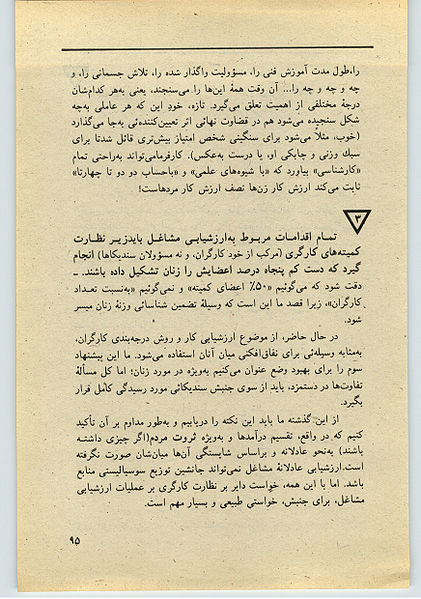 را،طول مدت آموزش فنی را، مسؤولیت واگذار شده را، تلاش جسمانی را، و
چه و چه و چه را... آن وقت همهٔ این‌ها را می‌سنجند، یعنی به‌هر کدام‌شان
درجهٔ مختلفی از اهمیت تعلق می‌گیرد. تازه، خودِ این که هر عاملی به‌چه
شکل سنجیده می‌شود هم در قضاوت نهائی اثر تعیین‌کننده‌ئی به‌جا می‌گذارد
(خوب، مثلاً می‌شود برای سنگینی شخص امتیاز بیش‌تری قائل شدتا برای
سبك وزنی و چابکی او، یا درست به‌عکس). کارفرمامی‌تواند به‌راحتی تمام
«کارشناسی» بیاورد که «با شیوه‌های علمی» و «باحساب دو دو تا چهارتا»
ثابت می‌کند ارزش کار زن‌ها نصف ارزش کار مردهاست!
۳
تمـام اقدامـات مربـوط به‌ارزشیابـی مشاغـل بایدزیـر نظـارت
کمیته‌های کارگری (مرکب از خود کارگران، و نه مسؤولان سندیکاها) انجام
گیرد که دست کم پنجاه درصد اعضایش را زنان تشکیل داده باشند. ـ
دقت شود که می‌گوئیم «۵۰٪ اعضای کمیته» و نمی‌گوئیم «به‌نسبت تعداد
کارگران»، زیرا قصد ما این است که وسیلهٔ تضمین شناسائی وزنهٔ زنان میسر
شود.
در حال حاضر، از موضوع ارزشیابی کار و روش درجه‌بندی کارگران،
به‌مثابه وسیله‌ئی برای نفاق‌افکنی میان آنان استفاده می‌شود. ما این پیشنهاد
سوم را برای بهبود وضع عنوان می‌کنیم به‌ویژه در مورد زنان؛ اما کل مسألهٔ
تفاوت‌ها در دستمزد، باید از سوی جنبش سندیکائی مورد رسیدگی کامل قرار
بگیرد.
از این گذشته ما باید این نکته را دریابیم و به‌طور مداوم بر آن تأکید
کنیم که در واقع، تقسیم درآمدها و به‌ویژه ثروت مردم(اگر چیزی داشتـه
باشند) به‌نحو عادلانه و براساس شایستگی آن‌ها میان‌شان صورت نگرفته
است.ارزشیابی عادلانهٔ مشاغل نمی‌تواند جانشین توزیع سوسیالیستی منابع
باشد. اما با این همه، خواست دایر بر نظارت کارگری بر عملیات ارزشیابی
مشاغل، برای جنبش، خواستی طبیعی و بسیار مهم است.
۹۵